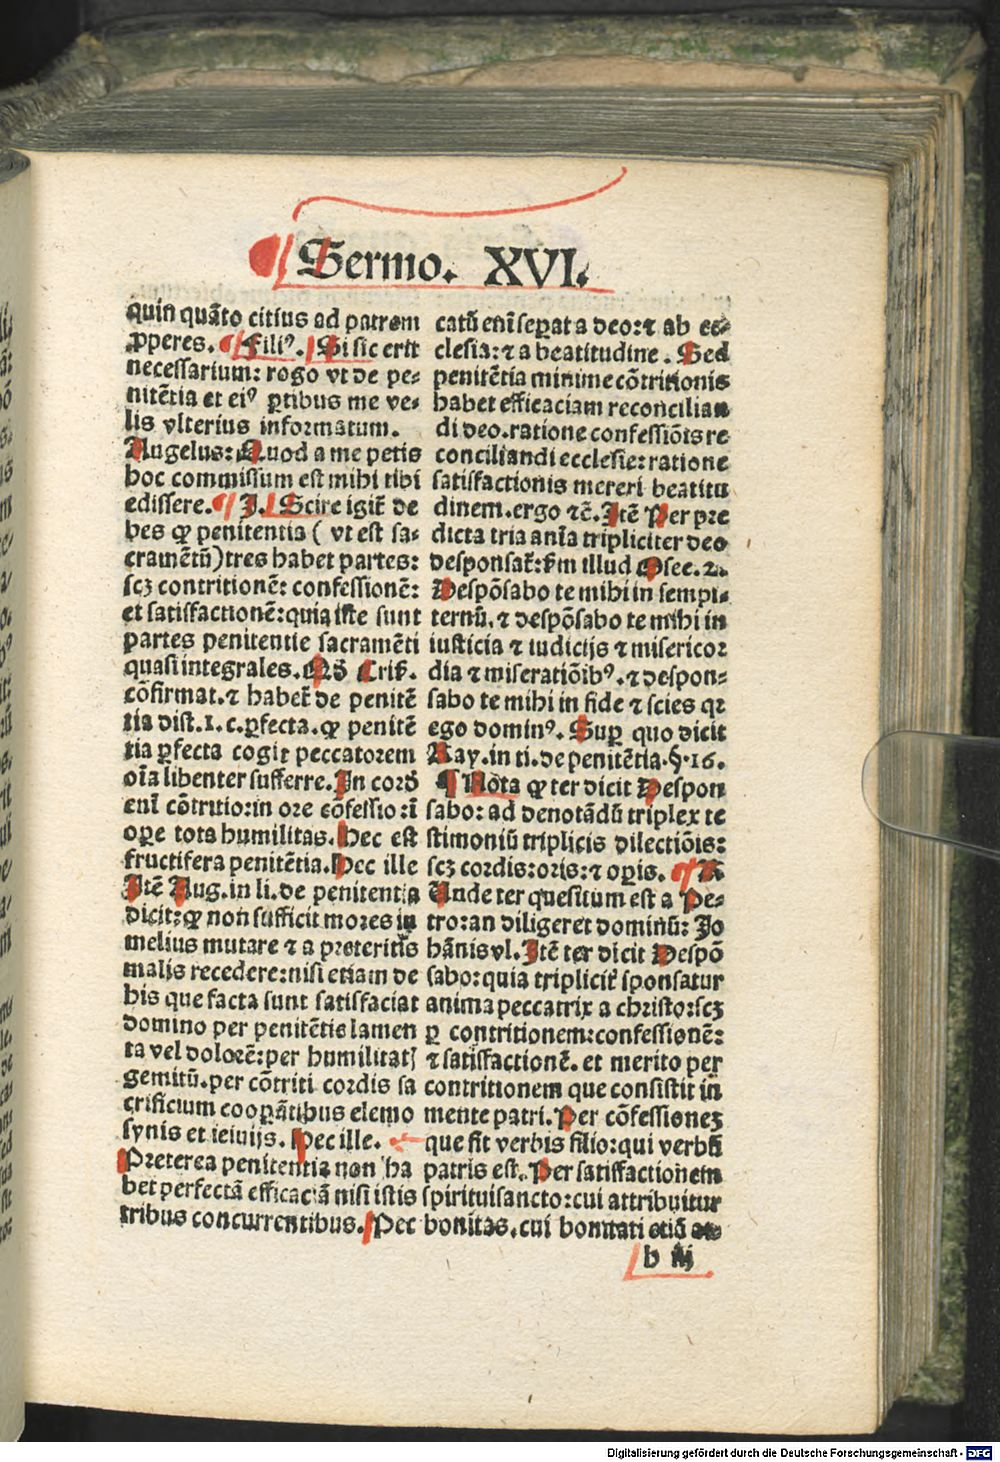 Sermo. XVI.
quin quāto citius ad patrem
ꝓperes. ¶ Filiꝰ. Si sic erit
necessarium: rogo vt de pe⸗
nitētia et eiꝰ ꝑtibus me ve⸗
lis vlterius informatum.
Angelus: Quod a me petis
hoc commissum est mihi tibi
edissere. ¶ I. Scire igit᷑ de
bes ꝙ penitentia ( vt est sa⸗
cramētū) tres habet partes:
scꝫ contritionē: confessionē:
et satisfactionē: quia iste sunt
partes penitentie sacramēti
quasi integrales. Qđ Crisͦ.
cōfirmat. ⁊ habet᷑ de penitē
tia dist. 1. c. ꝑfecta. ꝙ penitē
tia ꝑfecta cogit peccatorem
oīa libenter sufferre. In corđ
enī cōtritio: in ore cōfessio: ī
oꝑe tota humilitas. Hec est
fructifera penitētia. Hec ille
Itē Aug. in li. de penitentia
dicit: ꝙ non sufficit mores in
melius mutare ⁊ a preteritis
malis recedere: nisi etiam de
his que facta sunt satisfaciat
domino per penitētie lamen
ta vel dolorē: per humilitatꝭ
gemitū. per cōtriti cordis sa
crificium cooꝑātibus elemo
synis et ieiuijs. Hec ille.
Preterea penitentia non ha
bet perfectā efficaciā nisi istis
tribus concurrentibus. Pec
catū enī seꝑat a deo: ⁊ ab ec⸗
clesia: ⁊ a beatitudine. Sed
penitētia minime cōtritionis
habet efficaciam reconcilian
di deo. ratione confessiōis re
conciliandi ecclesie: ratione
satisfactionis mereri beatitu
dinem. ergo ⁊cē. Itē Per pre
dicta tria anīa tripliciter deo
desponsat᷑: ẜm illud Osee. 2.
Despōsabo te mihi in sempi⸗
ternū. ⁊ despōsabo te mihi in
iusticia ⁊ iudicijs ⁊ misericor
dia ⁊ miseratiōibꝰ. ⁊ despon⸗
sabo te mihi in fide ⁊ scies qꝛ
ego dominꝰ. Suꝑ quo dicit
Ray. in ti. de penitētia. §. 16.
¶ Nota ꝙ ter dicit Despon
sabo: ad denotādū triplex te
stimoniū triplicis dilectiōis:
scꝫ cordis: oris: ⁊ oꝑis. ¶ A
Unde ter quesitum est a Pe⸗
tro: an diligeret dominū: Jo
hānis vl. Itē ter dicit Despō
sabo: quia triplicit᷑ sponsatur
anima peccatrix a christo: scꝫ
ꝑ contritionem: confessionē:
⁊ satisfactionē. et merito per
contritionem que consistit in
mente patri. Per cōfessioneꝫ
que fit verbis filio: qui verbū
patris est. Per satisfactionem
spirituisancto: cui attribuitur
bonitas. cui bonitati etiā
b iij
Digitalisierung gefördert durch die Deutsche Forschungsgemeinschaft - DFG